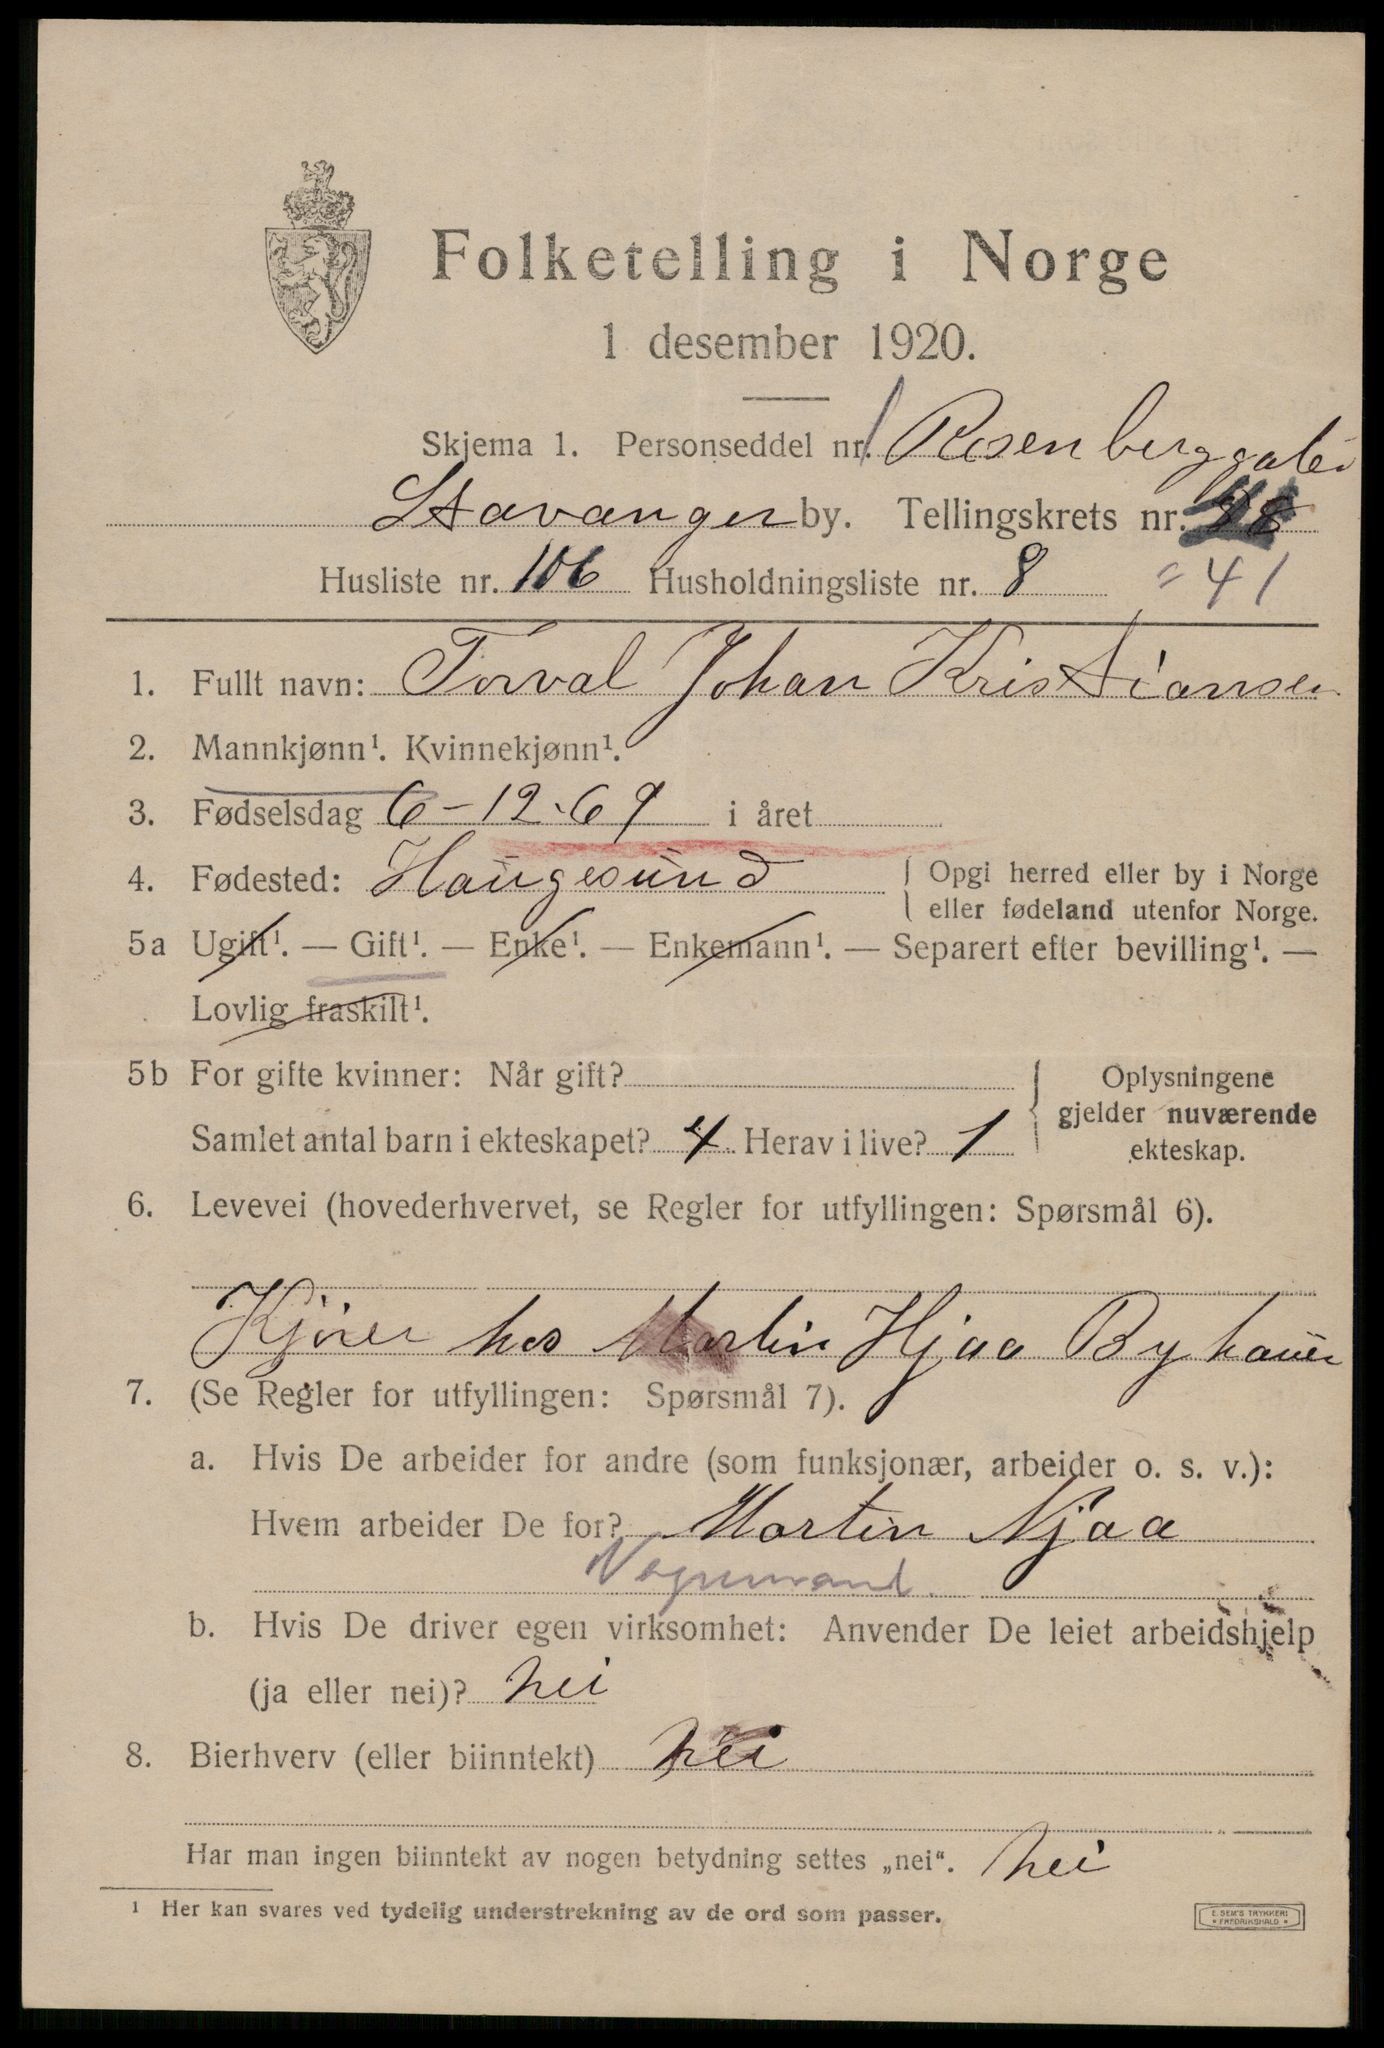 Folketelling i Norge
1 desember 1920.
Skjema 1. Personseddel nr. 1 Rosenberggaten
Stavanger by. Tellingskrets nr.
Husliste nr. 106 Husholdningsliste nr. 8 = 41
1. Fullt navn: Torval Johan Kristiansen
2. Mannkjønn¹. Kvinnekjønn¹.
3. Fødselsdag 6-12.69 i året
4. Fødested: Haugesund { Opgi herred eller by i Norge
eller fødeland utenfor Norge.
5a Ugift¹. — Gift¹. — Enke¹. — Enkemann¹. — Separert efter bevilling¹. —
Lovlig fraskilt¹.
5b For gifte kvinner: Når gift? { Oplysningene
gjelder nuværende
Samlet antal barn i ekteskapet? 4 Herav i live? 1
ekteskap.
6. Levevei (hovederhvervet, se Regler for utfyllingen: Spørsmål 6).
Kjører hos Martin Hjaa Byhauer
7. (Se Regler for utfyllingen: Spørsmål 7).
a. Hvis De arbeider for andre (som funksjonær, arbeider o. s. v.):
Hvem arbeider De for? Martin Njaa
Vognmand.
b. Hvis De driver egen virksomhet: Anvender De leiet arbeidshjelp
(ja eller nei)? nei
8. Bierhverv (eller biinntekt) nei
Har man ingen biinntekt av nogen betydning settes „nei". nei
¹ Her kan svares ved tydelig understrekning av de ord som passer.
E. SEM'S TRYKKERI
* FREDRIKSHALD *